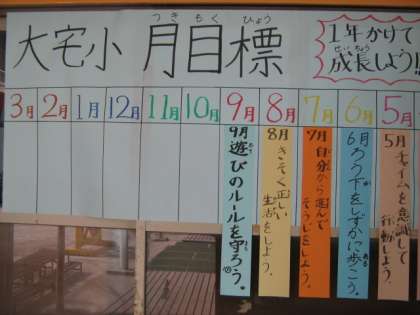 大宅小 月目標
つき もく ひょう
1年かけて
せいちょう
成長しよう!!
5月
6月
7月
8月
9月
10月
11月
12月
1月
2月
3月
5月 チャイムを意識して
行動しよう。
6月 ろう下をしずかに歩こう。
7月 自分から進んで
そうじをしよう。
8月 きそく正しい
生活をしよう。
9月 遊びのルールを守ろう。